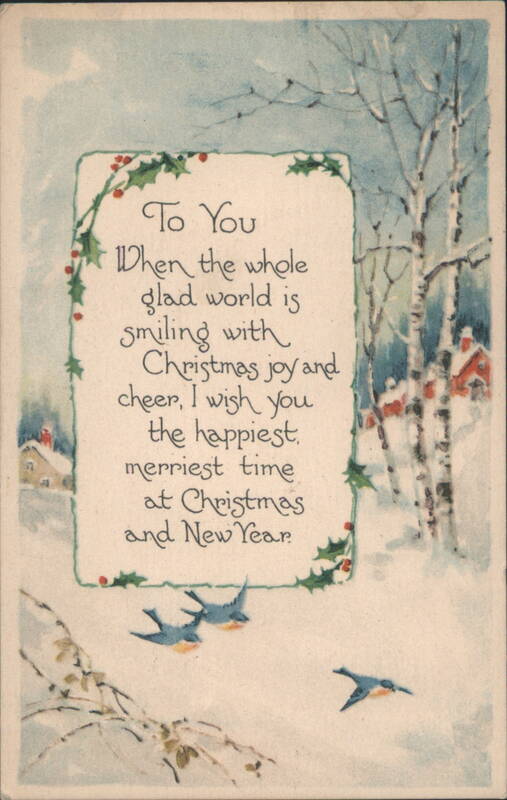 To You
When the whole
glad world is
smiling with
Christmas joy and
cheer, I wish you
the happiest,
merriest time
at Christmas
and New Year.